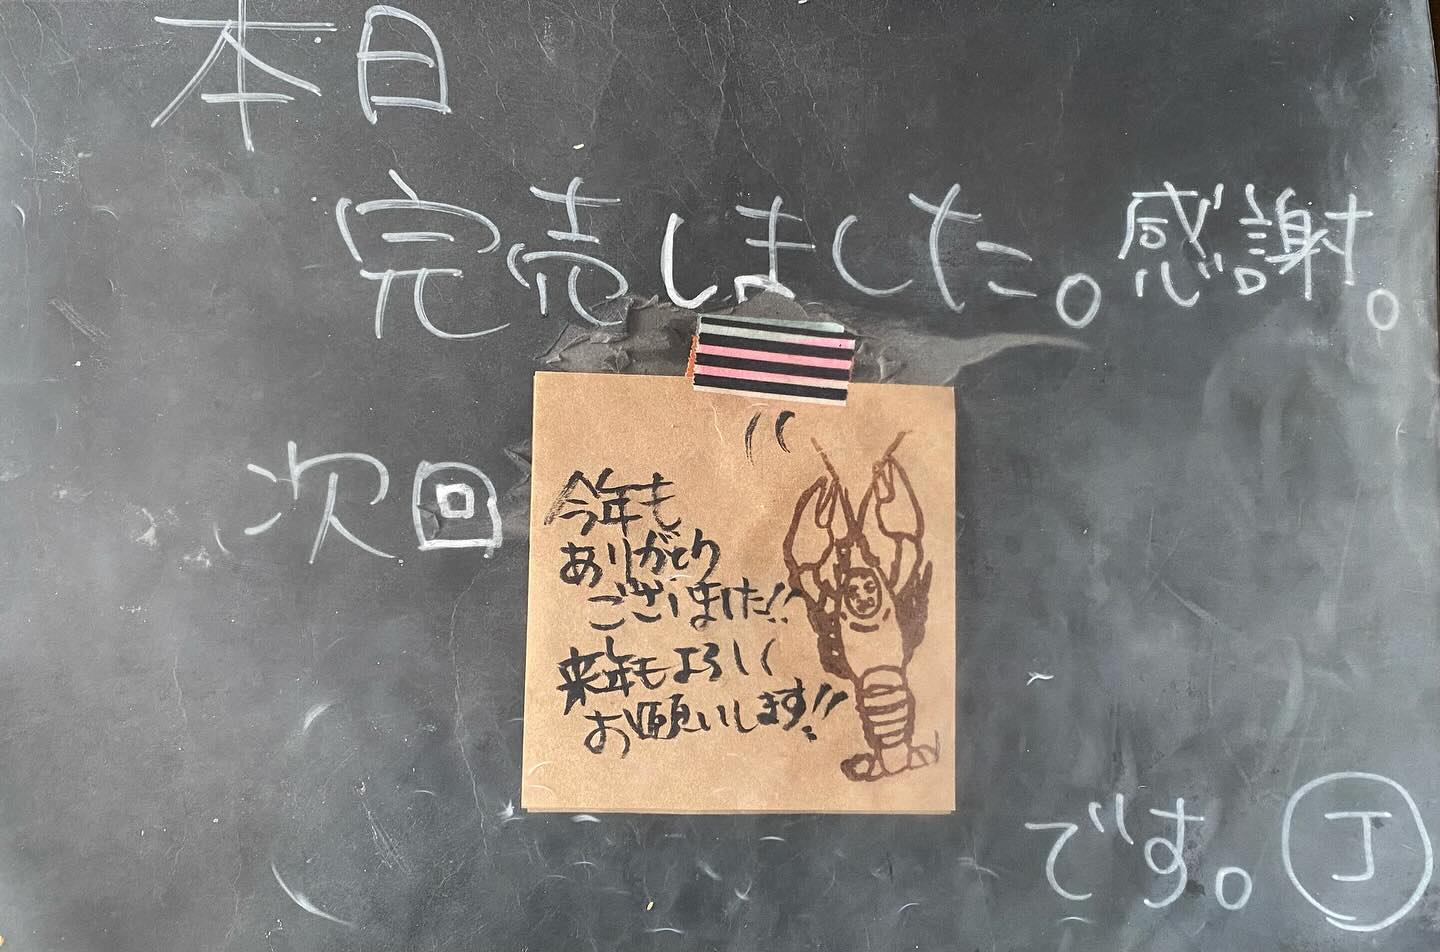 本日
完売しました。感謝。
次回
今年も
ありがとう
ございました!!
来年もよろしく
お願いします!!
です。 J